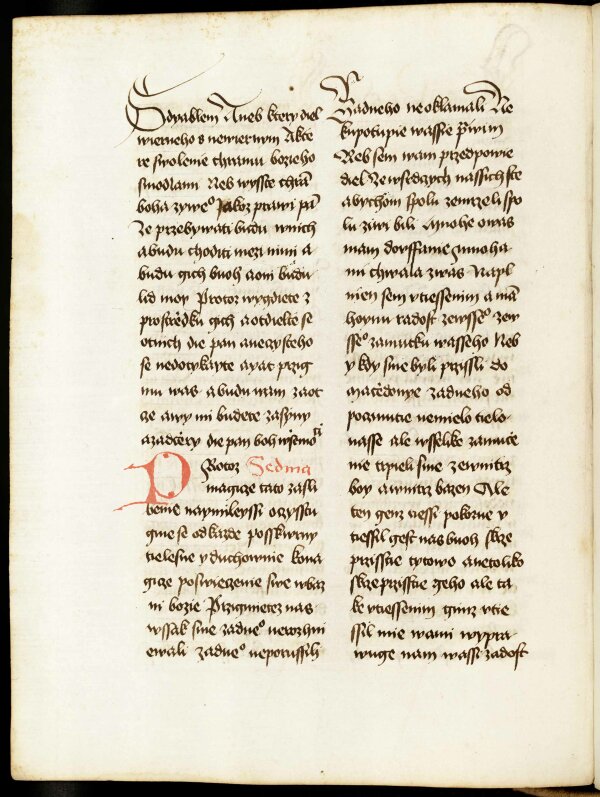 Sdyablem Aneb ktery diel
wierneho s newiernym Akte
re swolenie chramu bozieho
smodlami Neb wysste chra
boha zyweo Jakoz prawi pan
Ze przebywati budu wnich
abudu choditi mezi nimi a
budu gich buoh aoni budu
lid moy Protoz wygdiete z
prostrzedku gich aotdielte se
otnich die pan anecysteho
se nedotykayte ayat przig
mu was abudu wam zaot
cze awy mi budete zasyny
azadcery die pan boh wssemo
Protoz Sedma
magicze tato zasli
benie naymileyssi oczystu
gme se od kazde posskwrny
tielesne y duchownie kona
gicze poswieczenie swe wbaz
ni bozie Przigmietez nas
wssak sme zadneo neurzini
ewali zadneo neporussili
Zadneho neoklamali Ne
kupotupie wassie prawim
Neb sem wam przedpowie
diel Ze wsrdczych nassich ste
abychom spolu zemrzeli spo
lu ziwi bili Mnohe owas
mam dowffanie mnoha
mi chwala zwas Napl
nien sem vtiessenim a nad
hoynu radost zewsseo zar
sseo zamutku wasseho Neb
y kdy sme byli przissli do
maczedonye zadneho od
poczinutie nemielo tielo
nasse ale wsselike zamuce
nie trpieli sme zewnitrz
boy awnitrz bazen Ale
ten genz tiessi pokorne v
tiessil gest nas buoh skrze
przisstie tytowo anetoliko
skrze przisstie geho ale ta
ke vtiessenim gimz vtie
ssil mie wami wypra
wuge nam wassi zadost